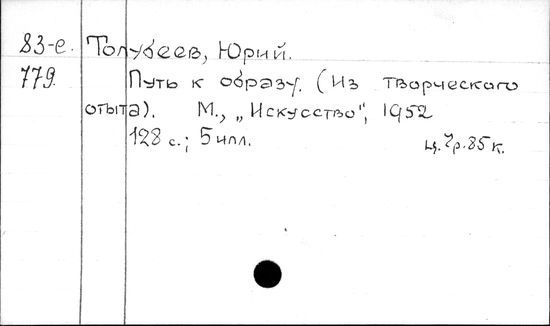 83-е. Толубеев, Юрий.
779. Путь к образу. (Из творческого
опыта). М., „Искусство", 1952
128 с.; 5 илл. ц. 7р. 85 к.